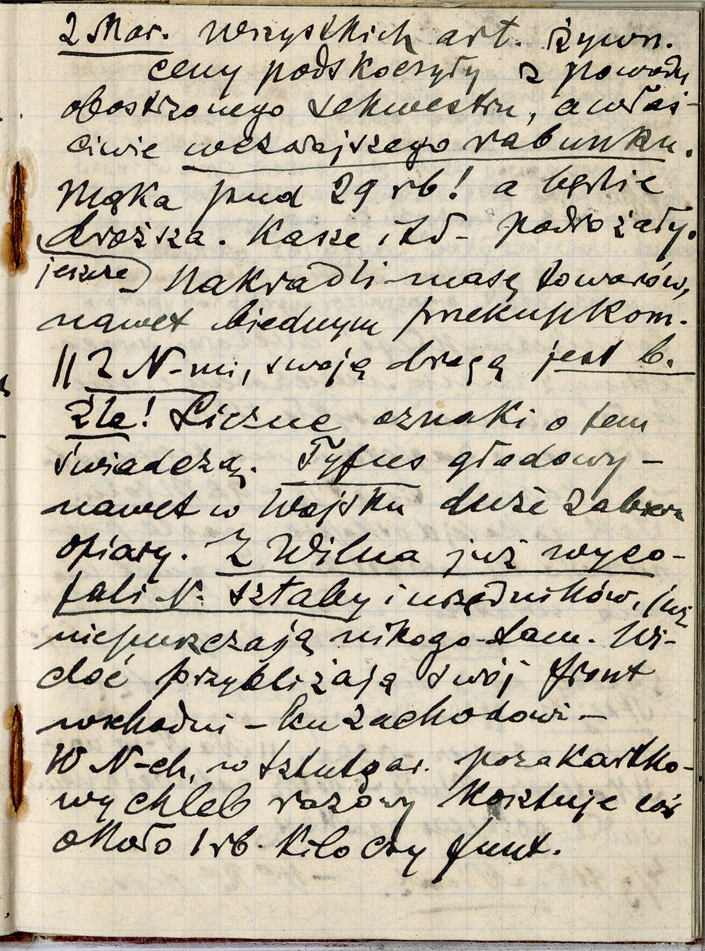 2 Mar. wszystkich art. żywn.
ceny podskoczyły z powodu
obostrzonego sekwestru, a właś-
ciwie wczorajszego rabunku.
Mąka pud 29 rb! a będzie
droższa. Kasze itd- podrożały.
jeszcze) Nakradli masę towarów,
nawet biednym przekupkom.
|| Z N-mi, swoją drogą jest b.
źle! Liczne oznaki o tem
świadczą. Tyfus głodowy -
nawet w wojsku duże zabiera
ofiary. Z Wilna już wyco-
fali N. sztaby i urzędników, już
niepuszczają nikogo tam. Wi-
doć przybliżają swój front
wschodni - ku zachodowi -
W N-ch, w Sztutgar. pozakartko-
wy chleb razowy kosztuje coś
około 1 rb. kilo czy funt.